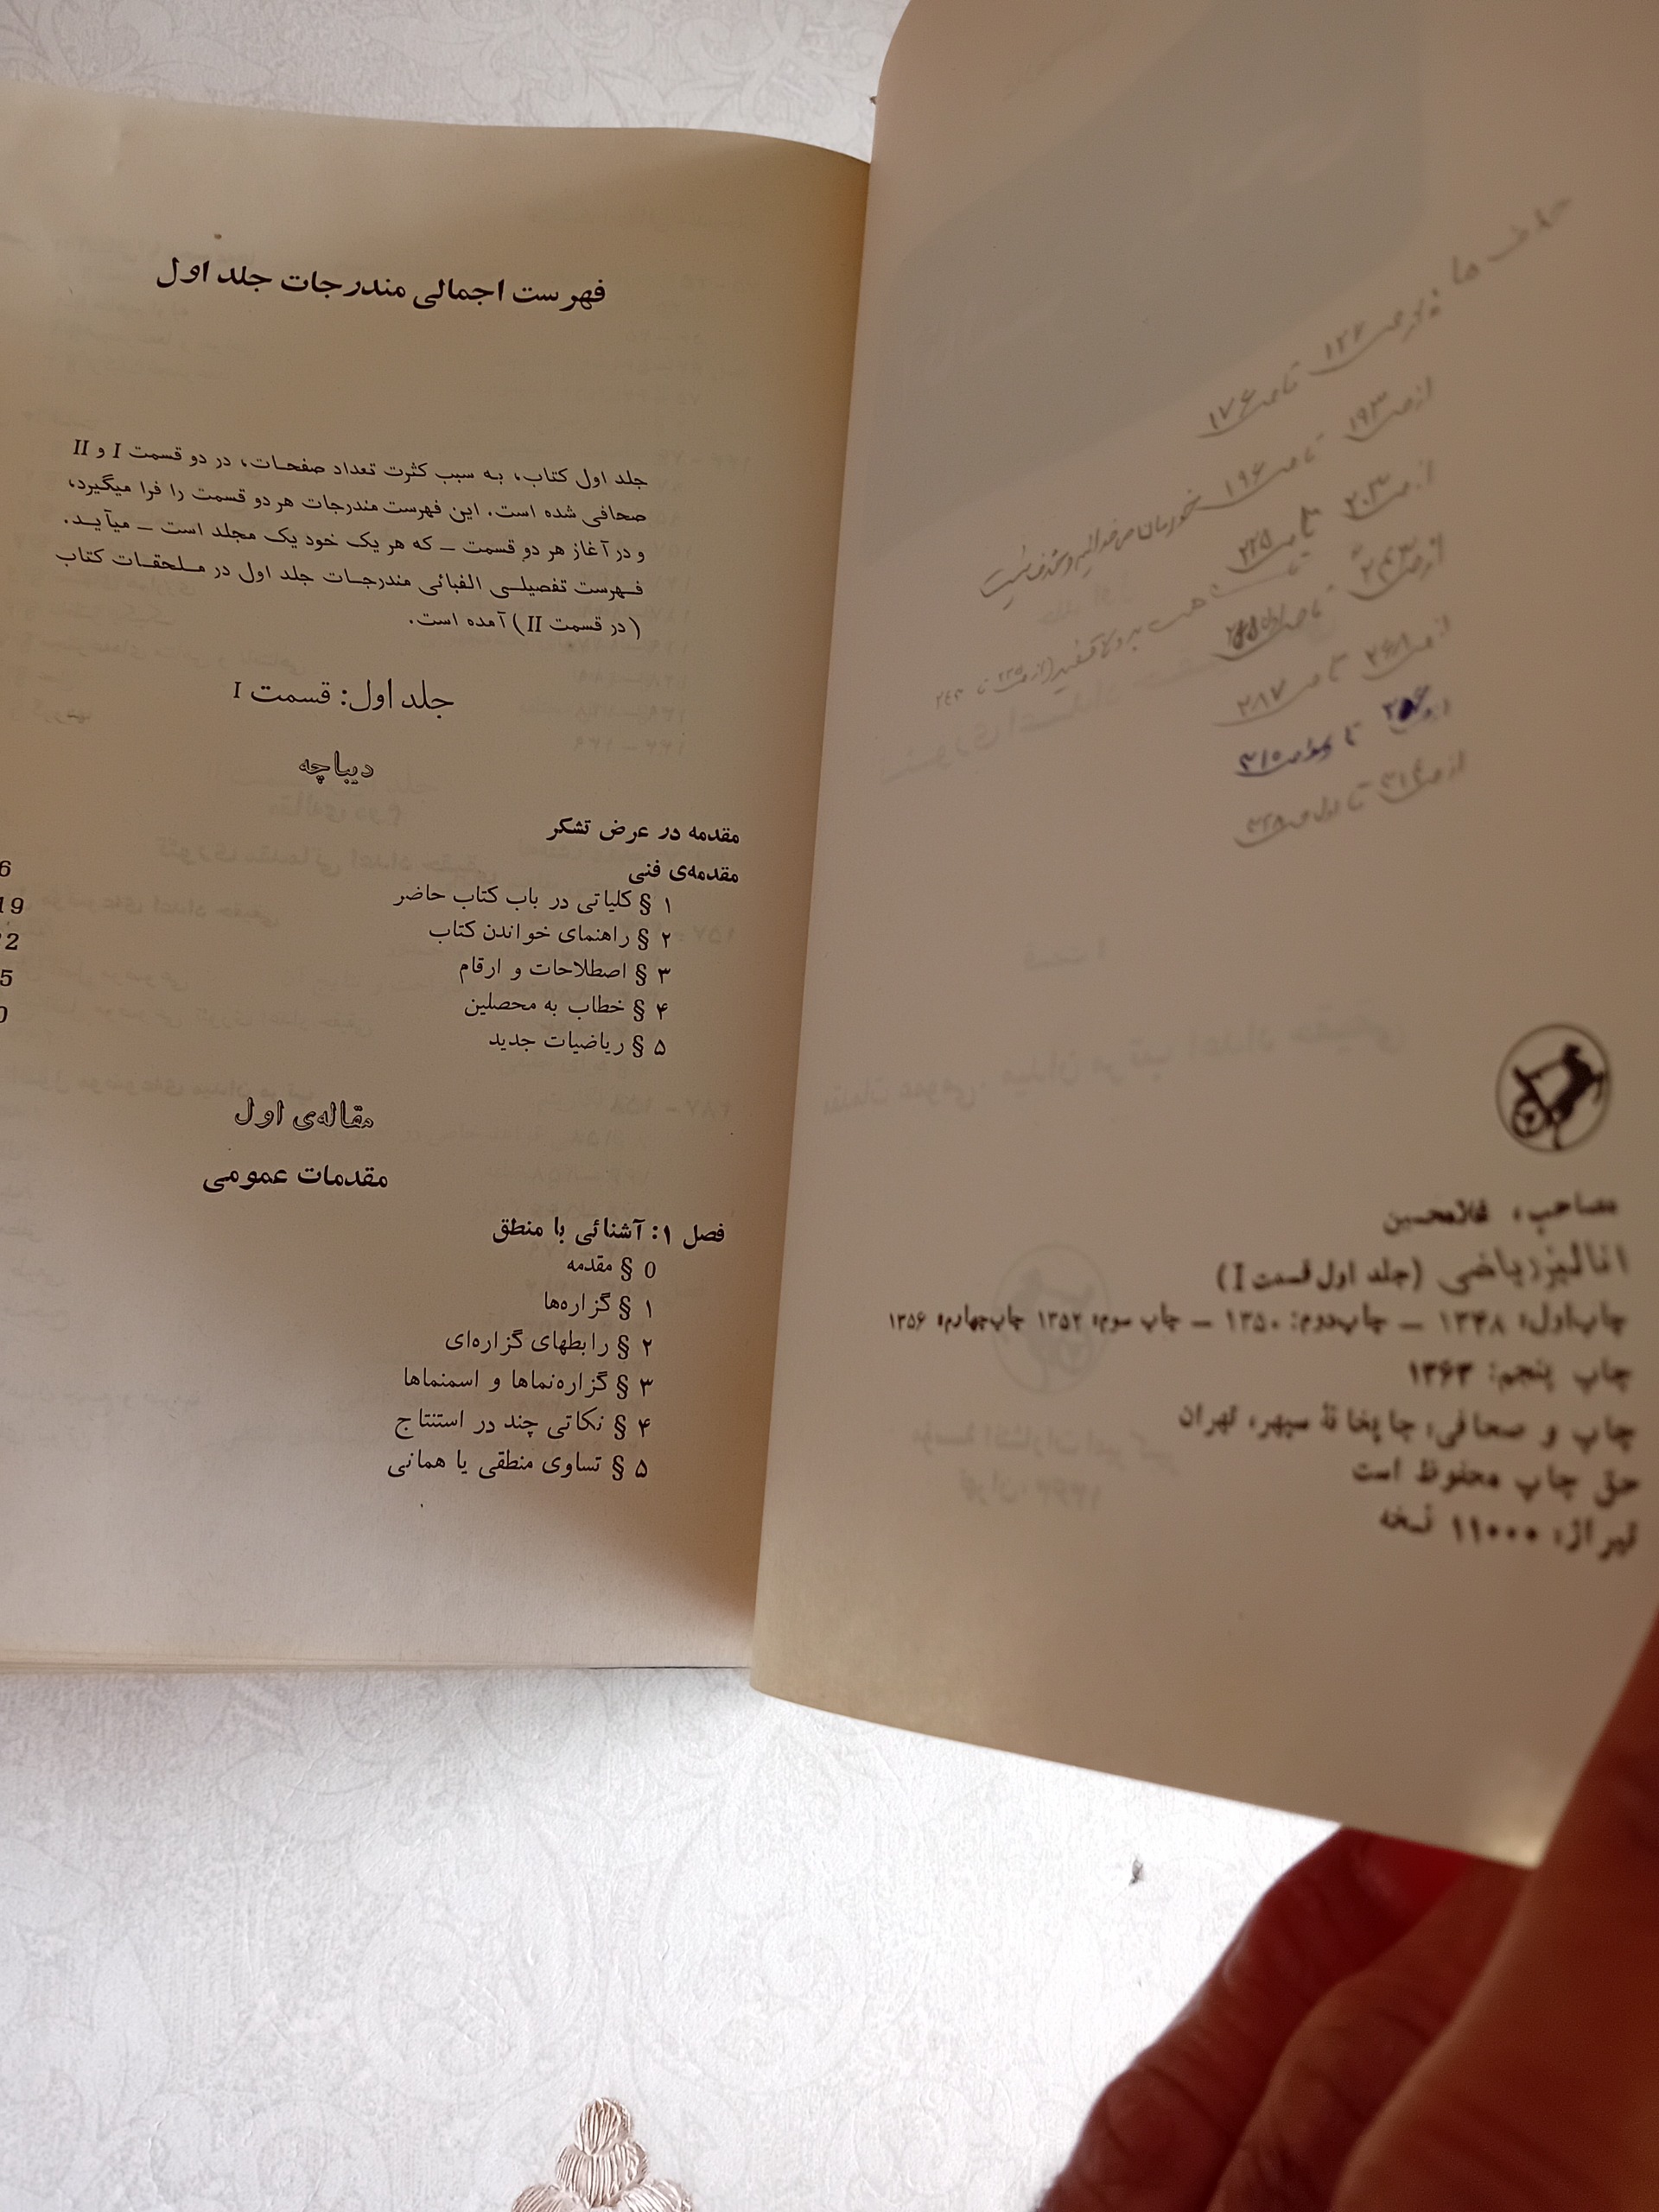 حذف ها
۱۲۶ تا ص ۱۷۶
از ص ۱۹۳ تا ص ۱۹۶
از ص ۲۰۳ تا ص ۲۲۵
از ص ۲۴۳ تا ص
از ص ۲۶۸ تا ص ۲۸۷
تا ص ۳۱۵
از ص ۳۱۶ تا اول ص ۳۲۸
مصاحب، غلامحسین
انالیز ریاضی (جلد اول قسمت I)
چاپ اول: ۱۳۴۸ — چاپ دوم: ۱۳۵۰ — چاپ سوم: ۱۳۵۲ چاپ چهارم: ۱۳۵۶
چاپ پنجم: ۱۳۶۳
چاپ و صحافی: چاپخانهٔ سپهر، تهران
حق چاپ محفوظ است
تیراژ: ۱۱۰۰۰ نسخه
فهرست اجمالی مندرجات جلد اول
جلد اول کتاب، به سبب کثرت تعداد صفحات، در دو قسمت I و II
صحافی شده است. این فهرست مندرجات هر دو قسمت را فرا میگیرد،
و در آغاز هر دو قسمت – که هر یک خود یک مجلد است – میآید.
فهرست تفصیلی الفبائی مندرجات جلد اول در ملحقات کتاب
(در قسمت II) آمده است.
جلد اول: قسمت I
دیباچه
مقدمه در عرض تشکر
مقدمه‌ی فنی
۱ § کلیاتی در باب کتاب حاضر 6
۲ § راهنمای خواندن کتاب 19
۳ § اصطلاحات و ارقام
۴ § خطاب به محصلین
۵ § ریاضیات جدید
مقاله‌ی اول
مقدمات عمومی
فصل ۱: آشنائی با منطق
0 § مقدمه
۱ § گزاره‌ها
۲ § رابطهای گزاره‌ای
۳ § گزاره‌نماها و اسمنماها
۴ § نکاتی چند در استنتاج
۵ § تساوی منطقی یا همانی